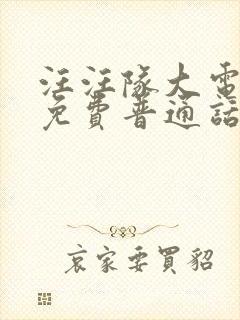 汪汪隊大電
免費普通話
哀家要買貂